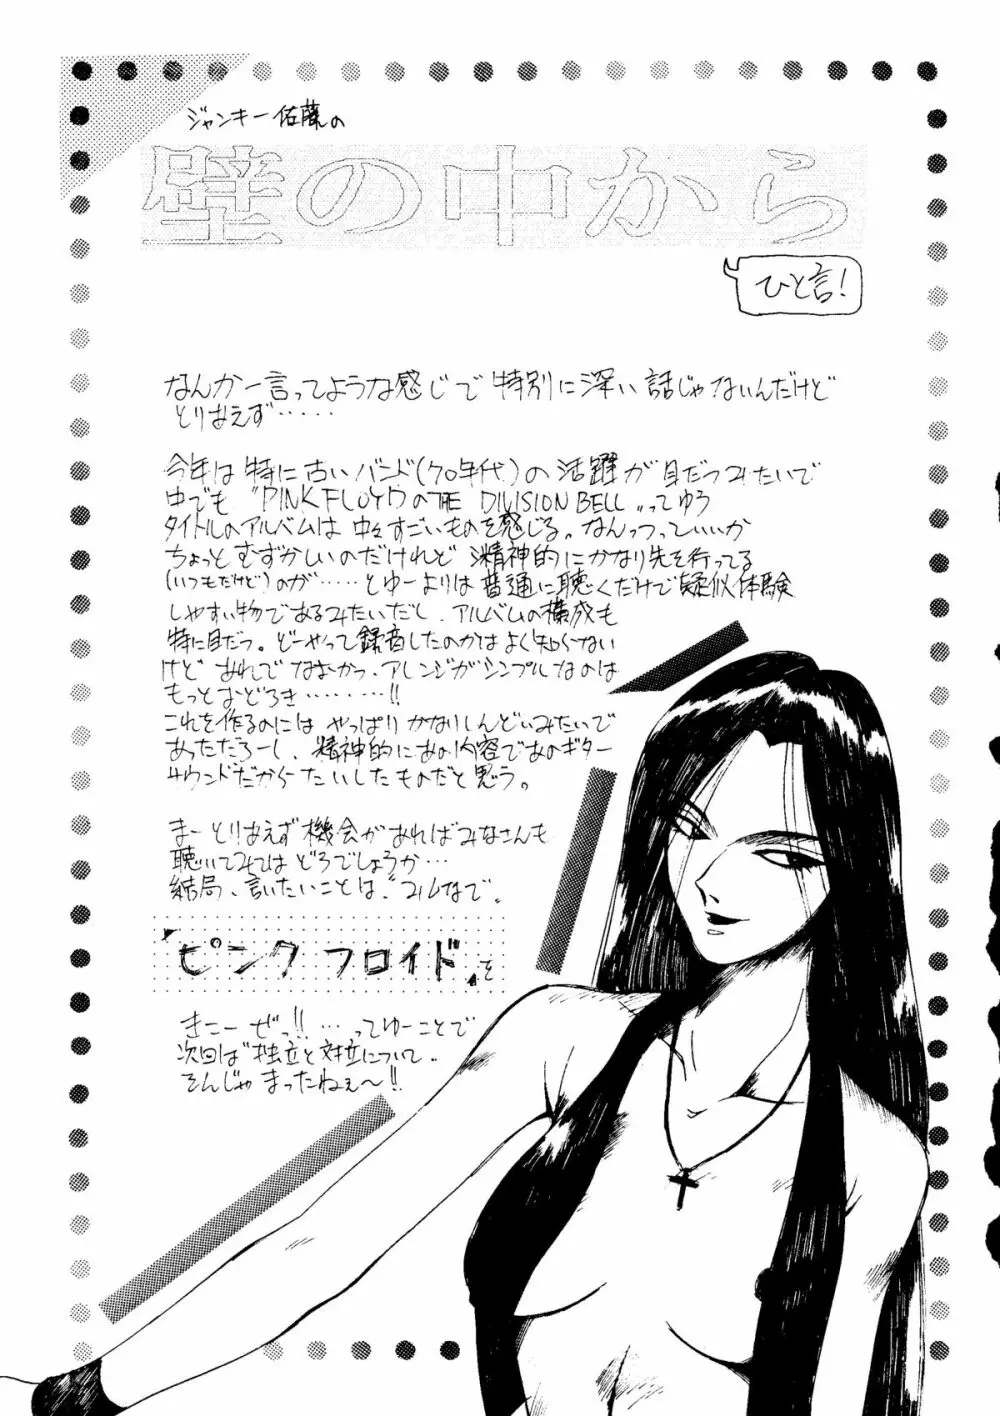 ジャンキー佐藤の
壁の中から
ひと言!
なんか一言ってような感じで特別に深い話じゃないんだけど
とりあえず……
今年は特に古いバンド(70年代)の活躍が目だつみたいで
中でも〝PINK FLOYDのTHE DIVISION BELL〟ってゆう
タイトルのアルバムは中々すごいものを感じる。なんつっていいか
ちょっとむずかしいのだけれど 精神的にかなり先を行ってる
(いつもだけど)のが……とゆーよりは普通に聴くだけで疑似体験
しやすい物であるみたいだし、アルバムの構成も
特に目だつ。どーやって録音したのかはよく知らない
けど あれでなおかつ、アレンジがシンプルなのは
もっとおどろき………!!
これを作るのには やっぱり かなりしんどいみたいで
あっただろーし、精神的にあの内容であのギター
サウンドだから たいしたものだと思う。
まーとりあえず機会があればみなさんも
聴いてみては どうでしょうか…
結局、言いたいことは
『ピンク フロイド』を
きこーぜっ!!…ってゆーことで
次回は〝独立と対立について〟
そんじゃ まったねぇ〜!!